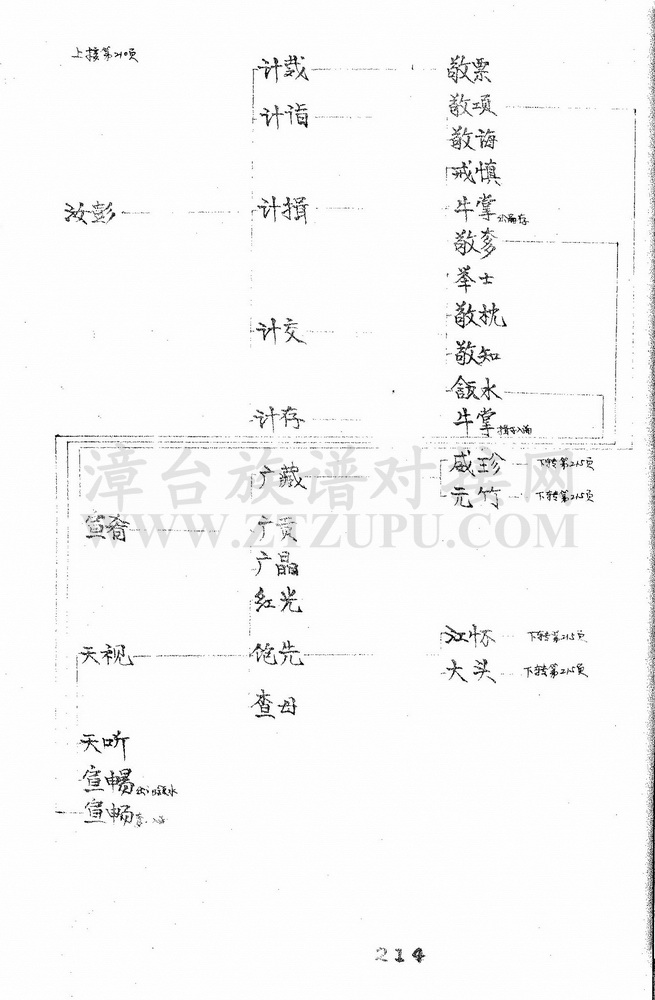 上接第210页
计哉 敬票
计诣 敬项
敬诲
戒慎
汝彭 计揖 牛掌
敬爹
举士
计交 敬枕
敬知
水
计存 牛掌
漳台族谱对接网
WWW.ZTZUPU.COM
广藏 咸珍 下转第215页
元竹 下转第215页
宣裔 广贡
广晶
红光
江怀 下转第215页
天视 饱先
大头 下转第215页
查母
天听
宣畅
宣畅
214